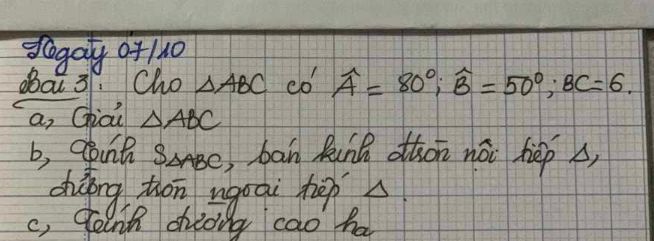 Ngày 07/10
Bài 3: Cho △ABC có Â = 80°; B̂ = 50°; BC = 6.
a, Giải △ABC
b, Tính S△ABC, bán kính đtròn nội tiếp △,
đường tròn ngoại tiếp △.
c, Tính đường cao ha